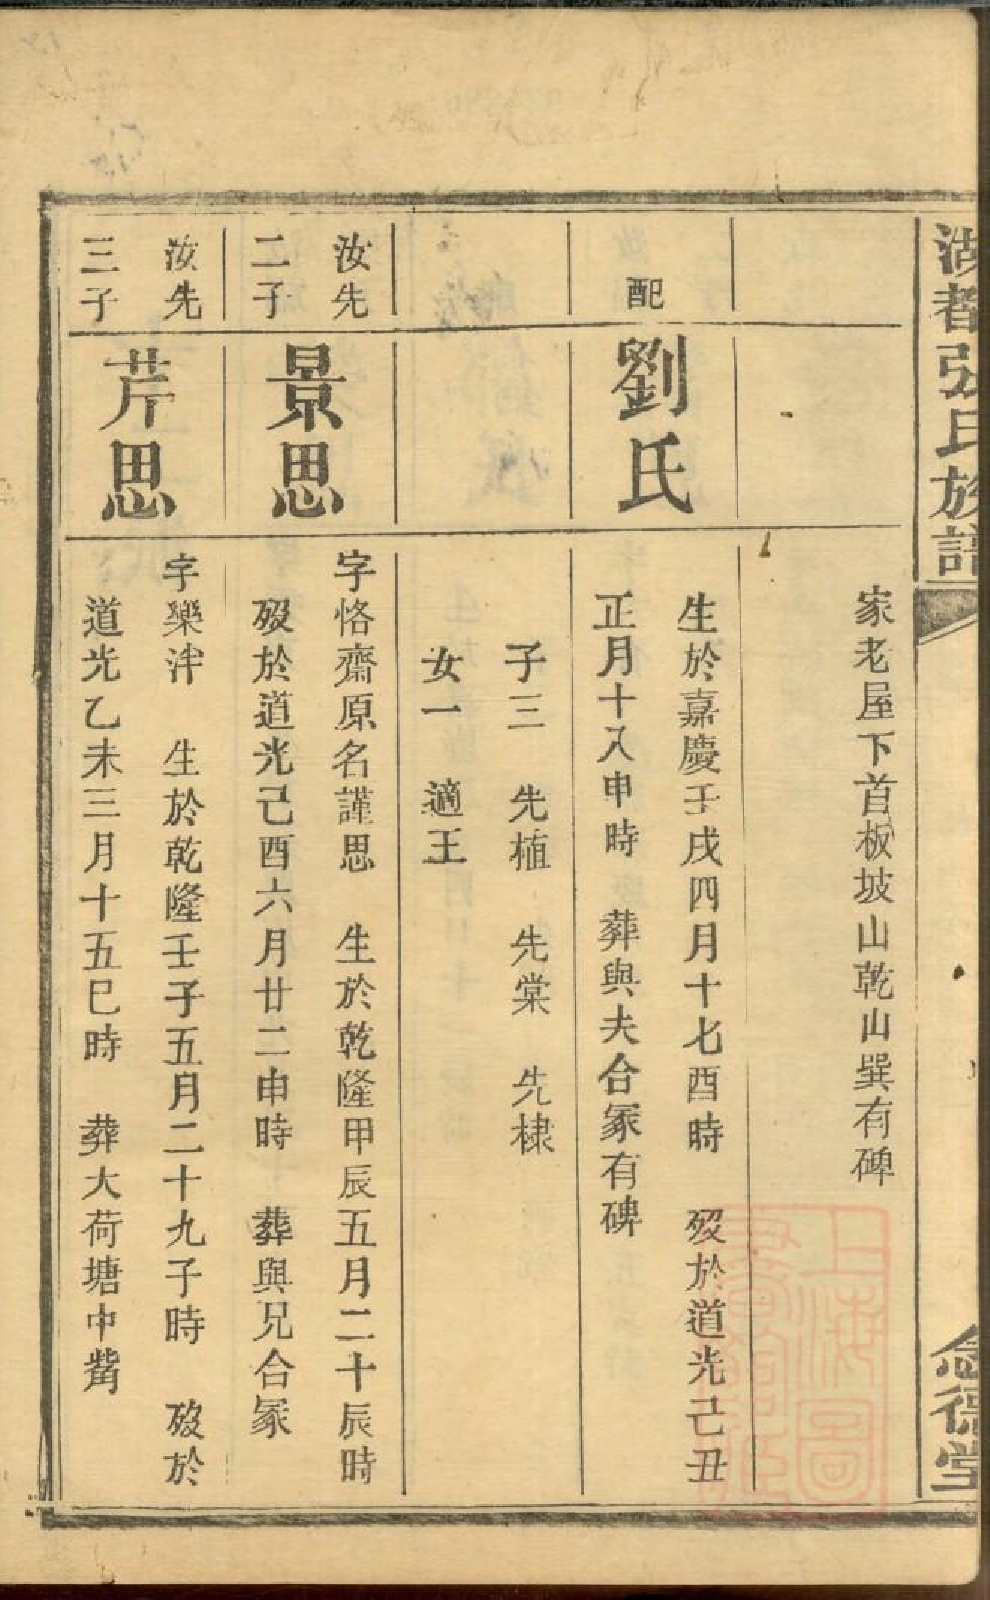 張氏族譜
德堂
家老屋下首板坡山乾山巽有碑
配
劉氏
生於嘉慶壬戌四月十七酉時　歿於道光己丑
正月十八申時　葬與夫合冢有碑
子三　先植　先棠　先棣
女一　適王
汝先
二子
景思
字恪齋原名謹思　生於乾隆甲辰五月二十辰時
歿於道光己酉六月廿二申時　葬與兄合冢
汝先
三子
芹思
字樂泮　生於乾隆壬子五月二十九子時　歿於
道光乙未三月十五巳時　葬大荷塘中嘴
上海圖